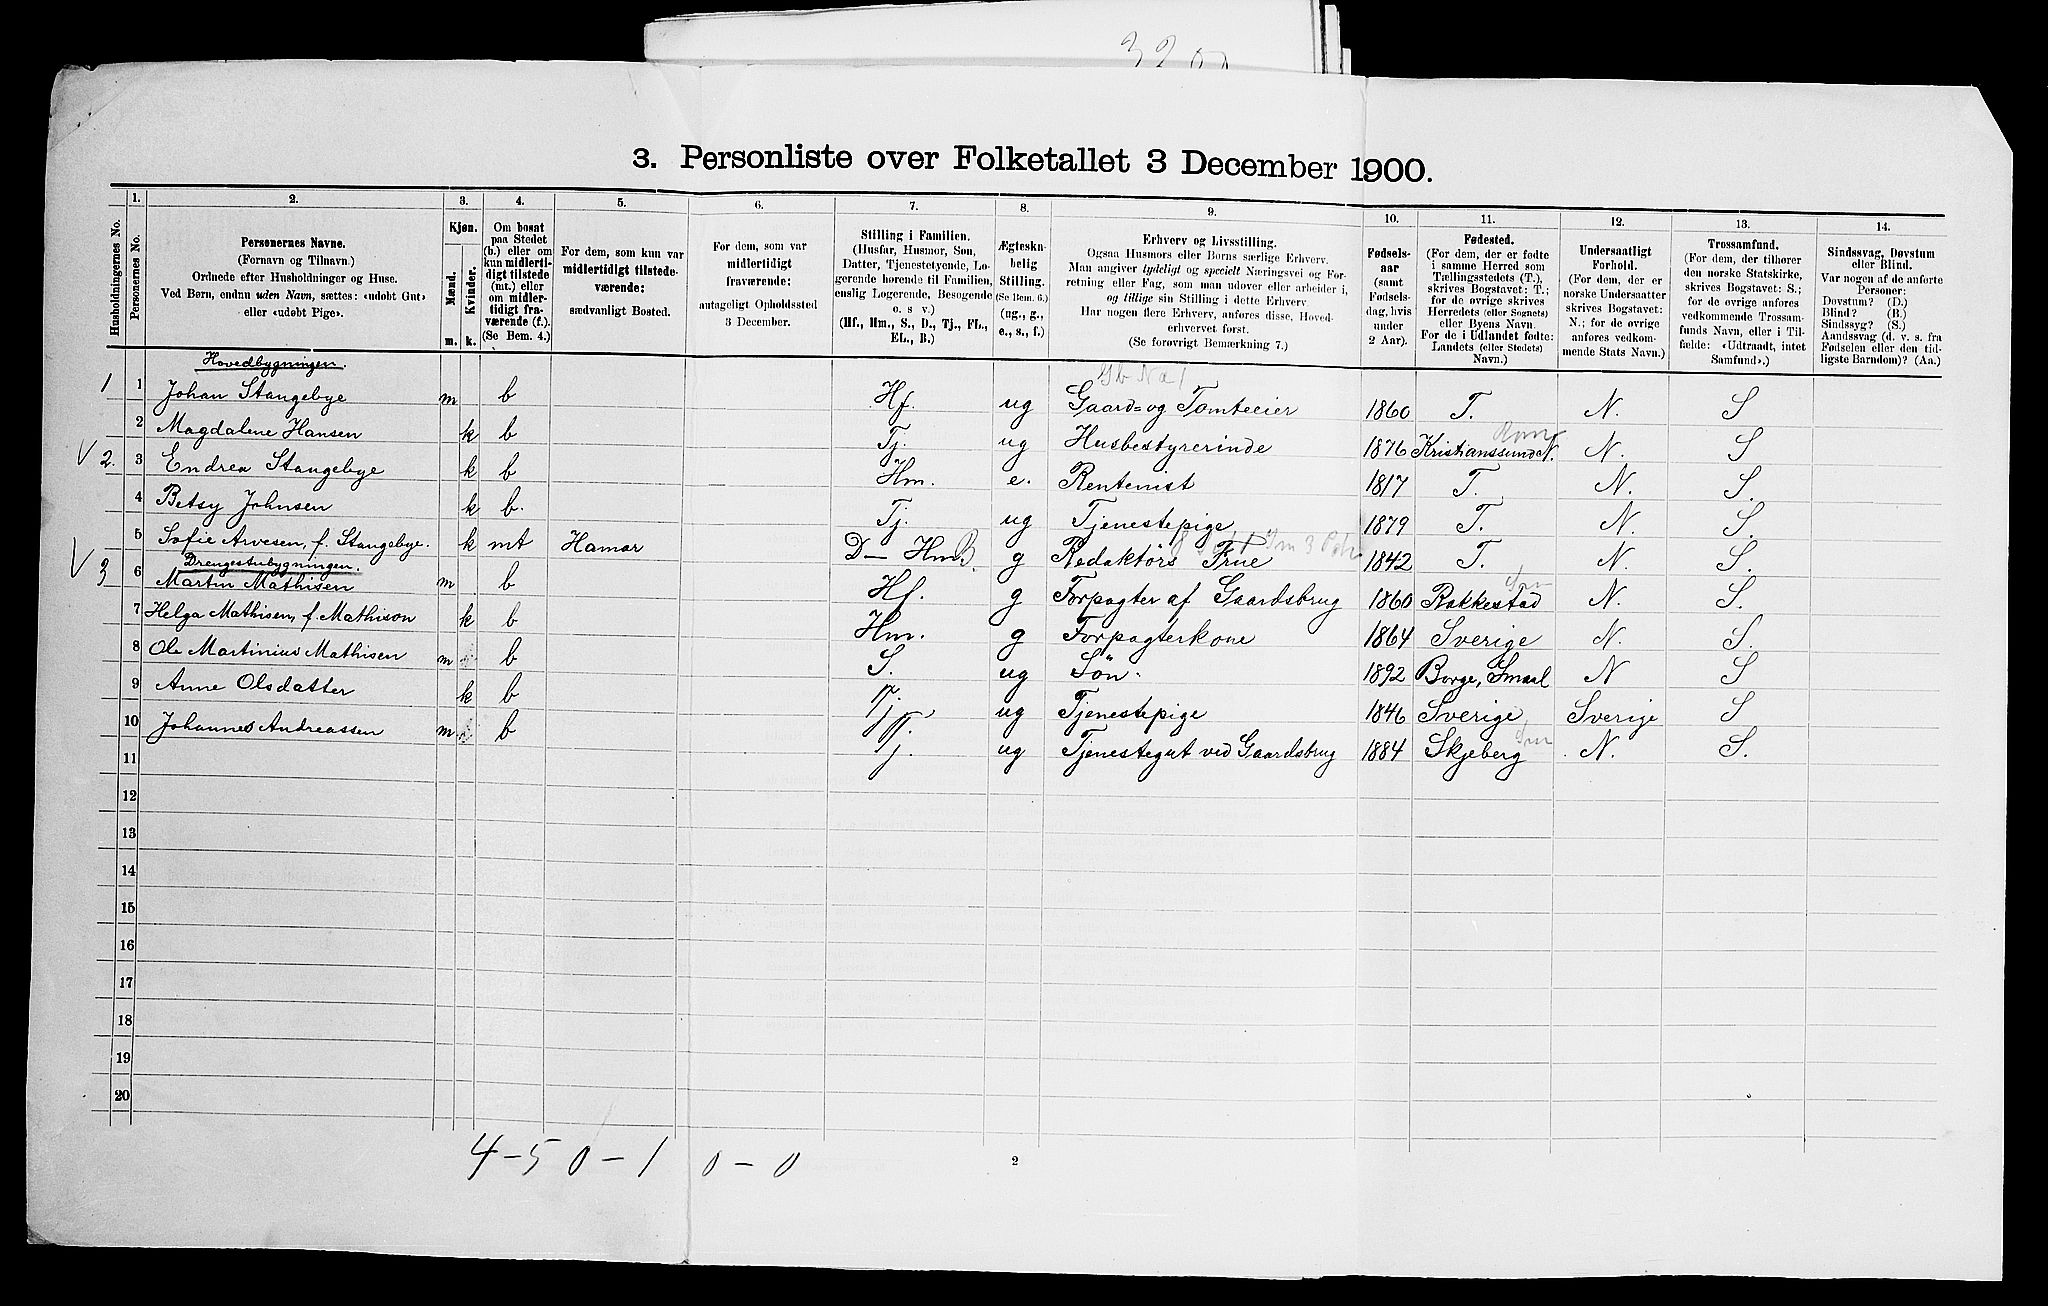 3. Personliste over Folketallet 3 December 1900.
Husholdningernes No.
1.
Personernes No.
2.
Personernes Navne.
(Fornavn og Tilnavn.)
Ordnede efter Husholdninger og Huse.
Ved Børn, endnu uden Navn, sættes: «udøbt Gut»
eller «udøbt Pige».
3.
Kjøn.
Mænd.
Kvinder.
m. k.
4.
Om bosat
paa Stedet
(b.) eller om
kun midlerti-
digt tilstede
(mt.) eller
om midler-
tidigt fra-
værende (f.).
(Se Bem. 4.)
5.
For dem, som kun var
midlertidigt tilstede-
værende:
sædvanligt Bosted.
6.
For dem, som var
midlertidigt
fraværende:
antageligt Opholdssted
3 December.
7.
Stilling i Familien.
(Husfar, Husmor, Søn,
Datter, Tjenestetyende, Lo-
gerende hørende til Familien,
enslig Logerende, Besøgende
o. s v.)
(Hf., Hm., S., D., Tj., FL.,
EL., B.)
8.
Ægteska-
belig
Stilling.
(Se Bem. 6.)
(ug., g.,
e., s., f.)
9.
Erhverv og Livsstilling.
Ogsaa Husmors eller Børns særlige Erhverv.
Man angiver tydeligt og specielt Næringsvei og For-
retning eller Fag, som man udover eller arbeider i,
og tillige sin Stilling i dette Erhverv.
Har nogen flere Erhverv, anføres disse, Hoved-
erhvervet først.
(Se forøvrigt Bemærkning 7.)
10.
Fødsels-
aar
(samt
Fødsels-
dag, hvis
under
2 Aar).
11.
Fødested.
(For dem, der er fødte
i samme Herred som
Tællingsstedets (T.),
skrives Bogstavet: T.;
for de øvrige skrives
Herredets (eller Sognets)
eller Byens Navn.
For de i Udlandet fødte:
Landets (eller Stedets)
Navn.)
12.
Undersaatligt
Forhold.
(For dem, der er
norske Undersaatter
skrives Bogstavet:
N.; for de øvrige
anføres vedkom-
mende Stats Navn.)
13.
Trossamfund.
(For dem, der tilhører
den norske Statskirke,
skrives Bogstavet: S.;
for de øvrige anføres
vedkommende Trossam-
funds Navn, eller i Til-
fælde: «Udtraadt, intet
Samfund».)
14.
Sindssvag, Døvstum
eller Blind.
Var nogen af de anførte
Personer:
Døvstum? (D.)
Blind? (B.)
Sindssyg? (S.)
Aandssvag (d. v. s. fra
Fødselen eller den tid-
ligste Barndom)? (Aa.)
Hovedbygningen.
1 1 Johan Stangebye m b Hf. ug Gaard- og Tomteeier 1860 T. N. S
2 Magdalene Hansen k b Tj. ug Husbestyrerinde 1876 Kristianssund N. N. S
V 2. 3 Endrea Stangebye k b Hm. e. Rentenist 1817 T. N. S.
4 Betsy Johnsen k b. Tj. ug Tjenestepige 1879 T. N. S.
5 Sofie Arvesen, f. Stangebye. k mt Hamar D— Hm B. g Redaktørs Frue 1842 T. N. S.
Drengestubygningen.
V 3 6 Martin Mathisen m b Hf. g Forpagter af Gaardsbrug 1860 Rakkestad N. S.
7 Helga Mathisen, f. Mathison k b Hm. g Forpagterkone 1864 Sverige N. S.
8 Ole Martinius Mathisen m b S. ug Søn. 1892 Borge, Smaal N S
9 Anne Olsdatter k b Tj. ug Tjenestepige 1846 Sverige Sverige S
10 Johannes Andreassen m b Tj. ug Tjenestegut ved Gaardsbrug 1884 Skjeberg N. S.
11
12
13
14
15
16
17
18
19
20
4-5 0-1 0-0
2